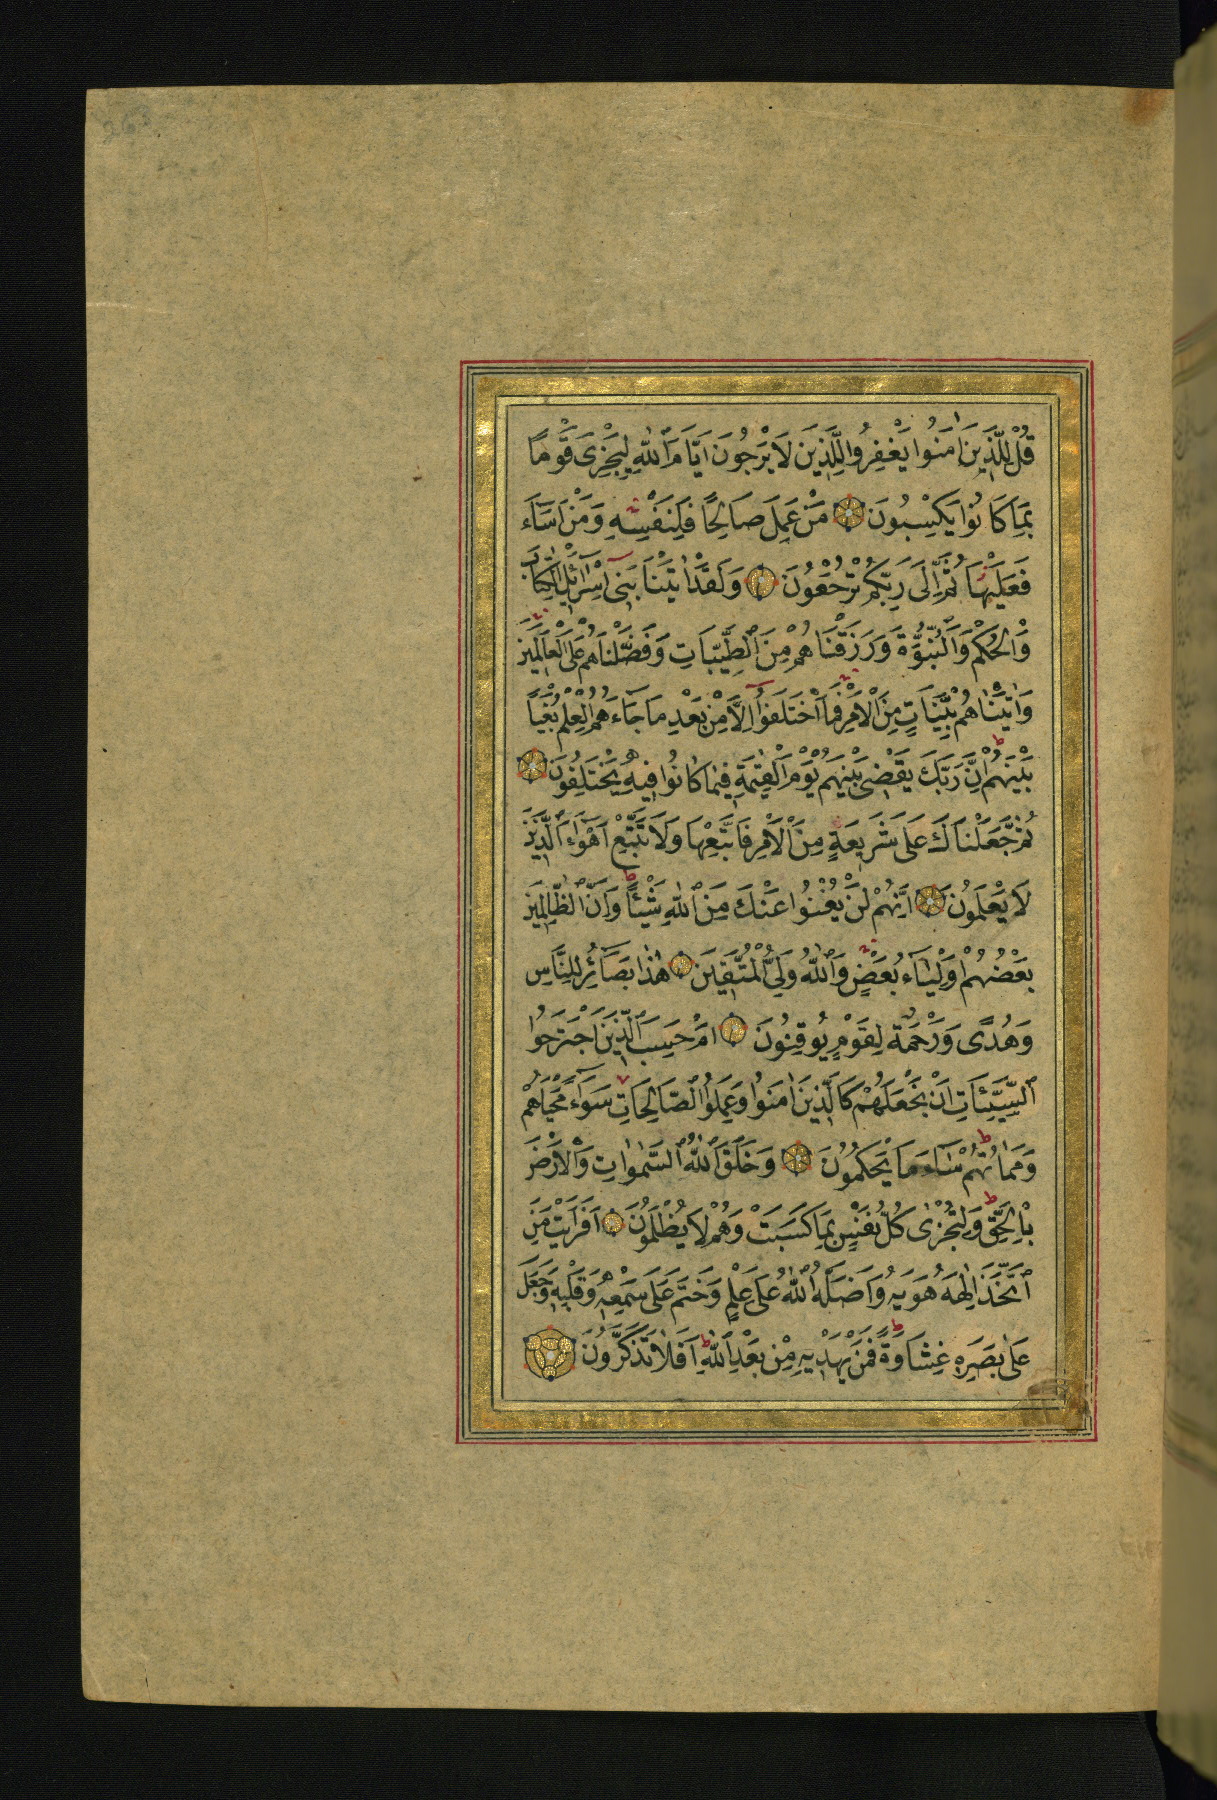 قُلْ لِلَّذِينَ اٰمَنُوا يَغْفِرُوا لِلَّذِينَ لَا يَرْجُونَ اَيَّامَ اللّٰهِ لِيَجْزِىَ قَوْمًا
بِمَا كَانُوا يَكْسِبُونَ مَنْ عَمِلَ صَالِحًا فَلِنَفْسِهِ وَمَنْ اَسَاءَ
فَعَلَيْهَا ثُمَّ اِلَى رَبِّكُمْ تُرْجَعُونَ وَلَقَدْ اٰتَيْنَا بَنِى اِسْرَائِلَ الْكِتَابَ
وَالْحُكْمَ وَالنُّبُوَّةَ وَرَزَقْنَاهُمْ مِنَ الطَّيِّبَاتِ وَفَضَّلْنَاهُمْ عَلَى الْعَالَمِينَ
وَاٰتَيْنَاهُمْ بَيِّنَاتٍ مِنَ الْاَمْرِ فَمَا اخْتَلَفُوا اِلَّا مِنْ بَعْدِ مَا جَاءَهُمُ الْعِلْمُ بَغْيًا
بَيْنَهُمْ اِنَّ رَبَّكَ يَقْضِى بَيْنَهُمْ يَوْمَ الْقِيٰمَةِ فِيمَا كَانُوا فِيهِ يَخْتَلِفُونَ
ثُمَّ جَعَلْنَاكَ عَلَى شَرِيعَةٍ مِنَ الْاَمْرِ فَاتَّبِعْهَا وَلَا تَتَّبِعْ اَهْوَاءَ الَّذِينَ
لَا يَعْلَمُونَ اِنَّهُمْ لَنْ يُغْنُوا عَنْكَ مِنَ اللّٰهِ شَيْئًا وَاِنَّ الظَّالِمِينَ
بَعْضُهُمْ اَوْلِيَاءُ بَعْضٍ وَاللّٰهُ وَلِىُّ الْمُتَّقِينَ هٰذَا بَصَائِرُ لِلنَّاسِ
وَهُدًى وَرَحْمَةٌ لِقَوْمٍ يُوقِنُونَ اَمْ حَسِبَ الَّذِينَ اجْتَرَحُوا
السَّيِّئَاتِ اَنْ نَجْعَلَهُمْ كَالَّذِينَ اٰمَنُوا وَعَمِلُوا الصَّالِحَاتِ سَوَاءً مَحْيَاهُمْ
وَمَمَاتُهُمْ سَاءَ مَا يَحْكُمُونَ وَخَلَقَ اللّٰهُ السَّمٰوَاتِ وَالْاَرْضَ
بِالْحَقِّ وَلِتُجْزٰى كُلُّ نَفْسٍ بِمَا كَسَبَتْ وَهُمْ لَا يُظْلَمُونَ اَفَرَاَيْتَ مَنِ
اتَّخَذَ اِلٰهَهُ هَوٰيهُ وَاَضَلَّهُ اللّٰهُ عَلَى عِلْمٍ وَخَتَمَ عَلَى سَمْعِهِ وَقَلْبِهِ وَجَعَلَ
عَلَى بَصَرِهِ غِشَاوَةً فَمَنْ يَهْدِيهِ مِنْ بَعْدِ اللّٰهِ اَفَلَا تَذَكَّرُونَ